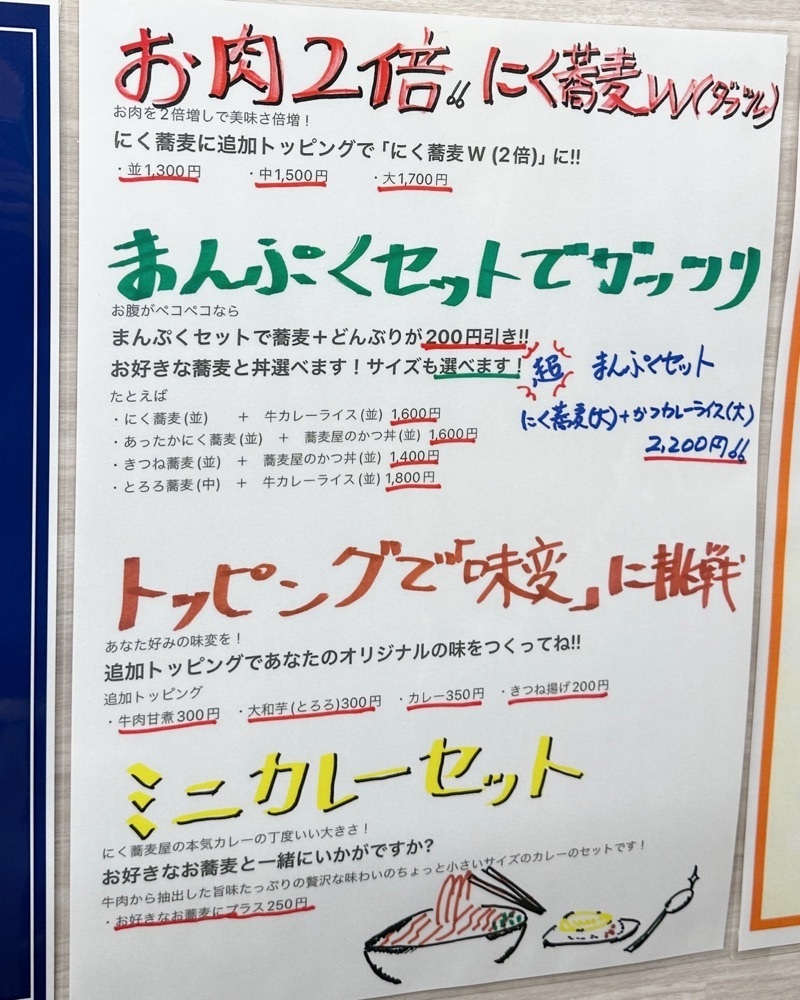 お肉2倍〝 にく蕎麦W(ダブル)
お肉を2倍増しで美味さ倍増！
にく蕎麦に追加トッピングで「にく蕎麦W(2倍)」に!!
・並1,300円 ・中1,500円 ・大1,700円
まんぷくセットでガッツリ
お腹がペコペコなら
まんぷくセットで蕎麦＋どんぶりが200円引き!!
お好きな蕎麦と丼選べます！サイズも選べます！
たとえば
・にく蕎麦(並) ＋ 牛カレーライス(並) 1,600円
・あったかにく蕎麦(並) ＋ 蕎麦屋のかつ丼(並) 1,600円
・きつね蕎麦(並) ＋ 蕎麦屋のかつ丼(並) 1,400円
・とろろ蕎麦(中) ＋ 牛カレーライス(並) 1,800円
超 まんぷくセット
にく蕎麦(大)+かつカレーライス(大)
2,200円〝
トッピングで「味変」に挑戦
あなた好みの味変を！
追加トッピングであなたのオリジナルの味をつくってね!!
追加トッピング
・牛肉甘煮300円 ・大和芋(とろろ)300円 ・カレー350円 ・きつね揚げ200円
ミニカレーセット
にく蕎麦屋の本気カレーの丁度いい大きさ！
お好きなお蕎麦と一緒にいかがですか?
牛肉から抽出した旨味たっぷりの贅沢な味わいのちょっと小さいサイズのカレーのセットです！
・お好きなお蕎麦にプラス250円